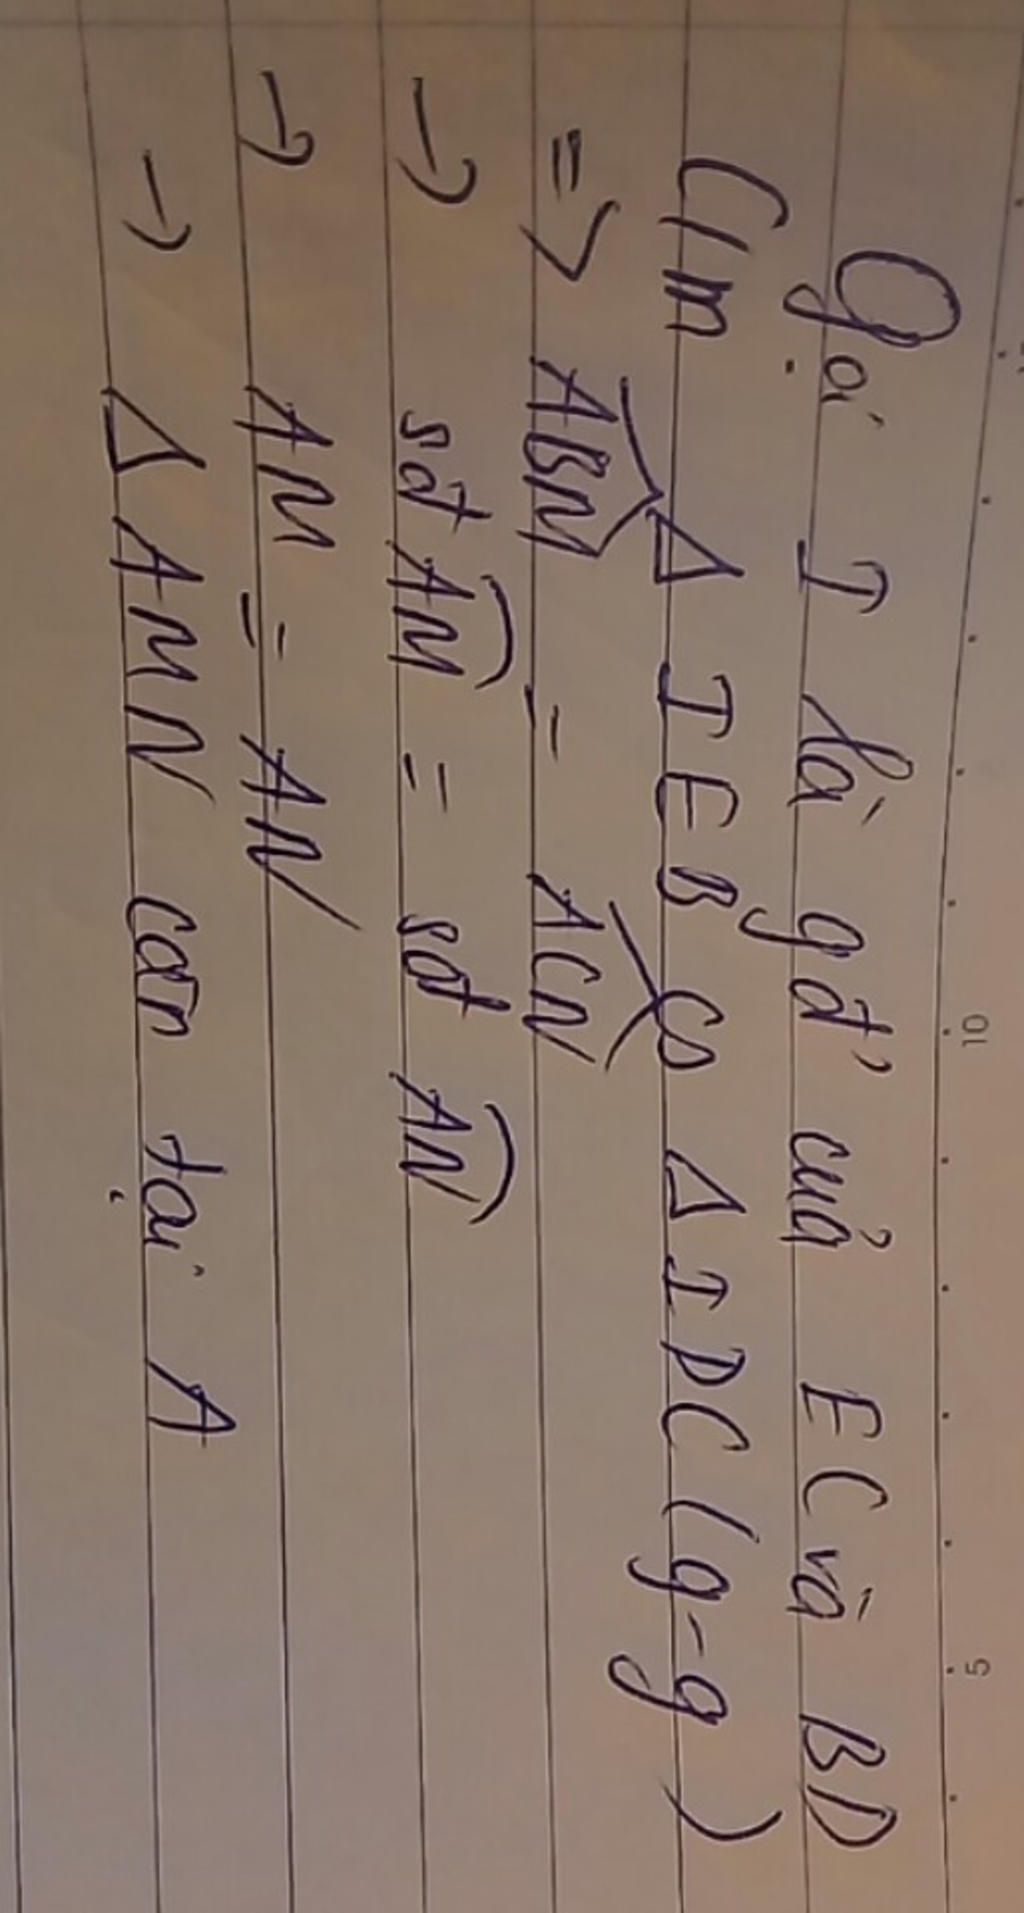 Gọi I là gđ' của EC và BD
C/m Δ IEB ᔕ Δ IDC (g-g)
=> ABM = ACN
→ sđ AM = sđ AN
→ AM = AN
→ Δ AMN cân tại A
10
5